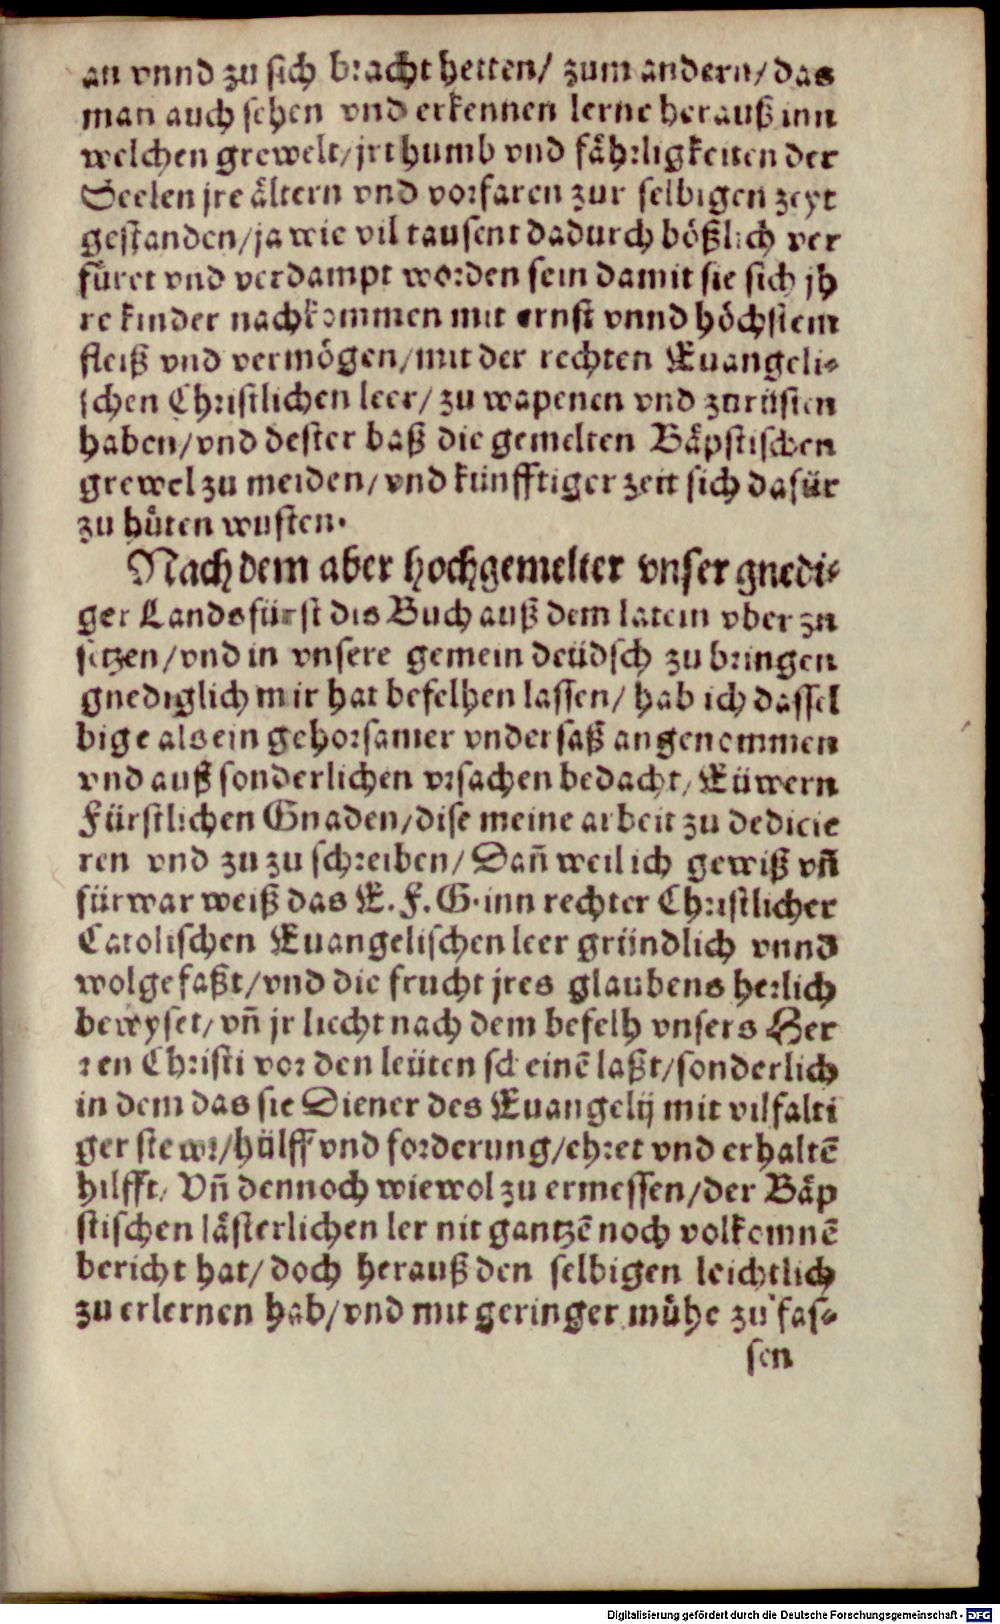 an vnnd zu sich bracht hetten/ zum andern/ das
man auch sehen vnd erkennen lerne herauß inn
welchen grewelt/ jrthumb vnd fåhrligkeiten der
Seelen jre åltern vnd vorfaren zur selbigen zeyt
gestanden/ ja wie vil tausent dadurch bößlich ver
füret vnd verdampt worden sein damit sie sich jh
re kinder nachkommen mit ernst vnnd höchstem
fleiß vnd vermögen/ mit der rechten Euangeli⸗
schen Christlichen leer/ zu wapenen vnd zurüsten
haben/ vnd dester baß die gemelten Båpstischen
grewel zu meiden/ vnd künfftiger zeit sich dafür
zu hüten wusten.
Nach dem aber hochgemelter vnser gnedi⸗
ger Landsfürst dis Buch auß dem latein vber zu
setzen/ vnd in vnsere gemein deüdsch zu bringen
gnediglich mir hat befelhen lassen/ hab ich dassel
bige als ein gehorsamer vndersaß angenommen
vnd auß sonderlichen vrsachen bedacht/ Eüwern
Fürstlichen Gnaden/ dise meine arbeit zu dedicie
ren vnd zu zu schreiben/ Dañ weil ich gewiß vñ
fürwar weiß das E. F. G. inn rechter Christlicher
Catolischen Euangelischen leer gründlich vnnd
wolgefaßt/ vnd die frucht jres glaubens herlich
bewyset/ vñ jr liecht nach dem befelh vnsers Her
ren Christi vor den leüten scheinē laßt/ sonderlich
in dem das sie Diener des Euangelij mit vilfalti
ger stewr/ hülff vnd forderung/ ehret vnd erhaltē
hilfft/ Vñ dennoch wiewol zu ermessen/ der Båp
stischen låsterlichen ler nit gantzē noch volkomnē
bericht hat/ doch herauß den selbigen leichtlich
zu erlernen hab/ vnd mit geringer mühe zu fas⸗
sen
Digitalisierung gefördert durch die Deutsche Forschungsgemeinschaft - DFG